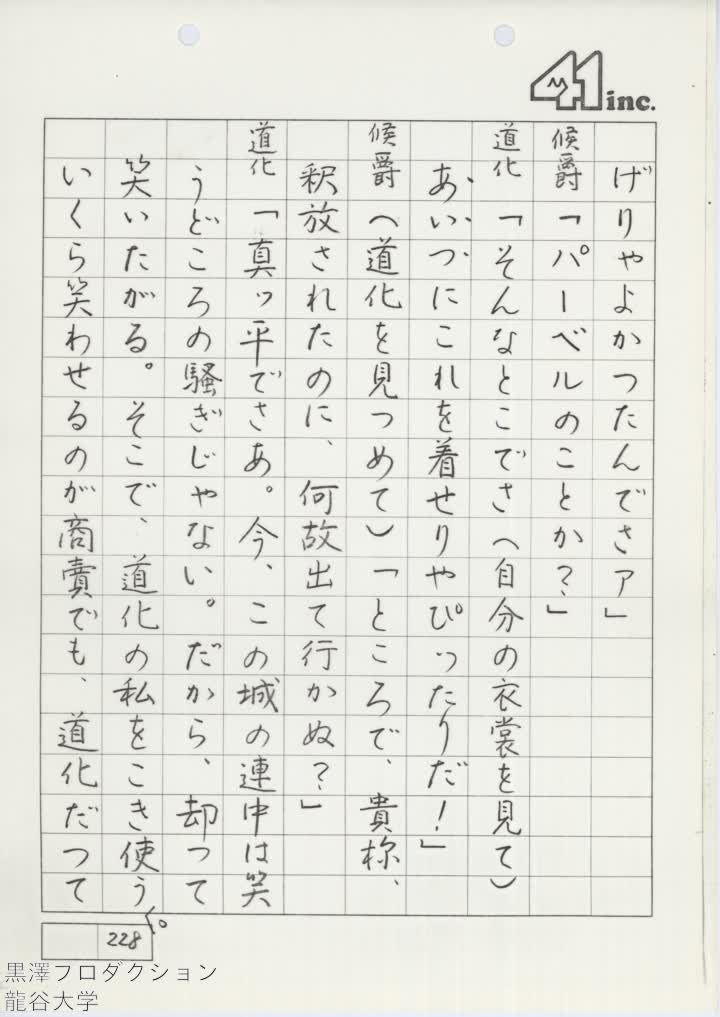 41 inc.
げりやよかつたんでさァ」
候爵「パーベルのことか?」
道化「そんなとこでさ(自分の衣裳を見て)
あいつにこれを着せりやぴったりだ!」
候爵(道化を見つめて)「ところで、貴袮、
釈放されたのに、何故出て行かぬ?」
道化「真ッ平でさあ。今、この城の連中は笑
うどころの騒ぎじゃない。だから、却って
笑いたがる。そこで、道化の私をこき使う。
いくら笑わせるのが商賣でも、道化だつて
228
黒澤プロダクション
龍谷大学